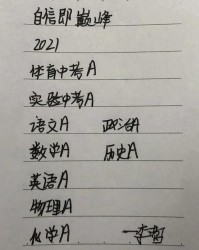 自信即巅峰
2021
体育中考A
实验中考A
语文A 政治A
数学A 历史A
英语A
物理A
化学A 一李哲